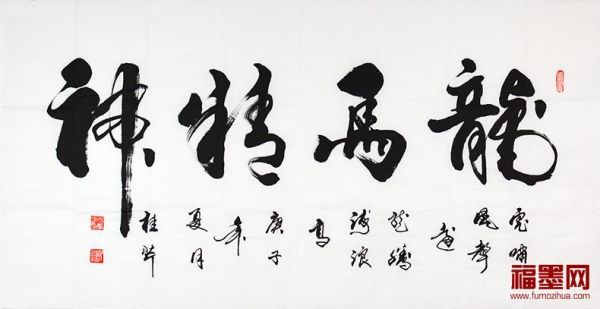 龍馬精神
虎嘯
風聲
遠
龍騰
浪
高
庚子
年
夏月
桂
福墨网
www.fumozihua.com